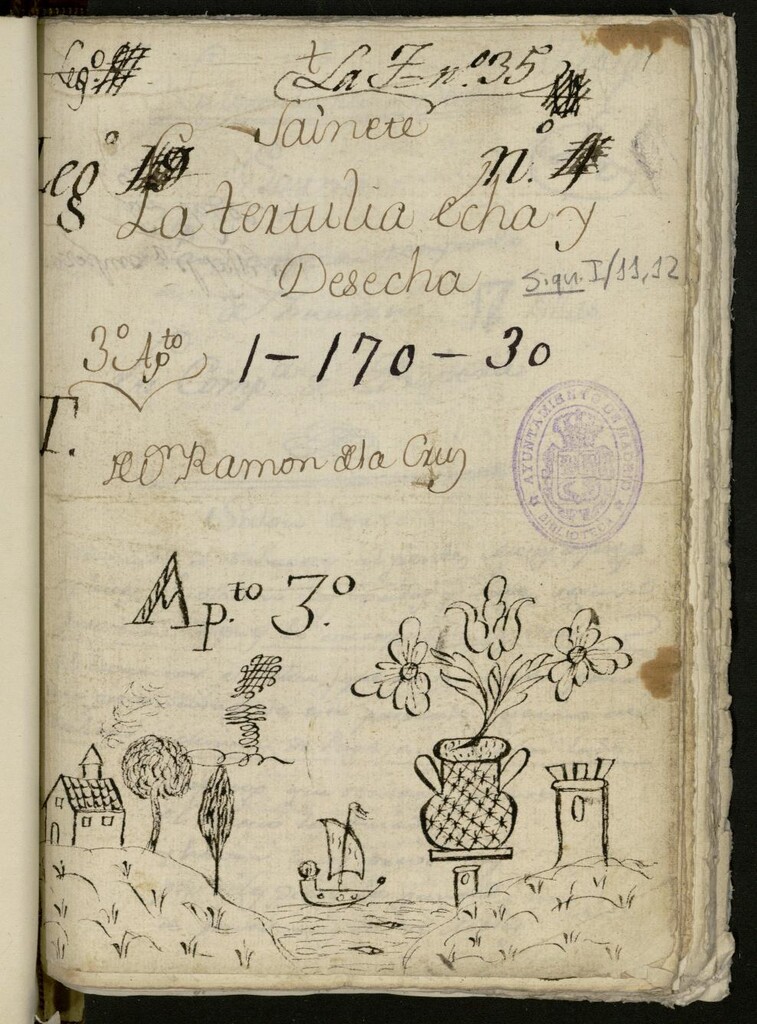 Leg.º
La T= n.º 35
Sainete
Leg.º 19 n.º 4
8
La tertulia echa y
Desecha
Sign. I/11,12
3º Apto
1-170-30
T.
De Dn Ramon dela Cruz
AYUNTAMIENTO DE MADRID
BIBLIOTECA
Ap.to 3.º